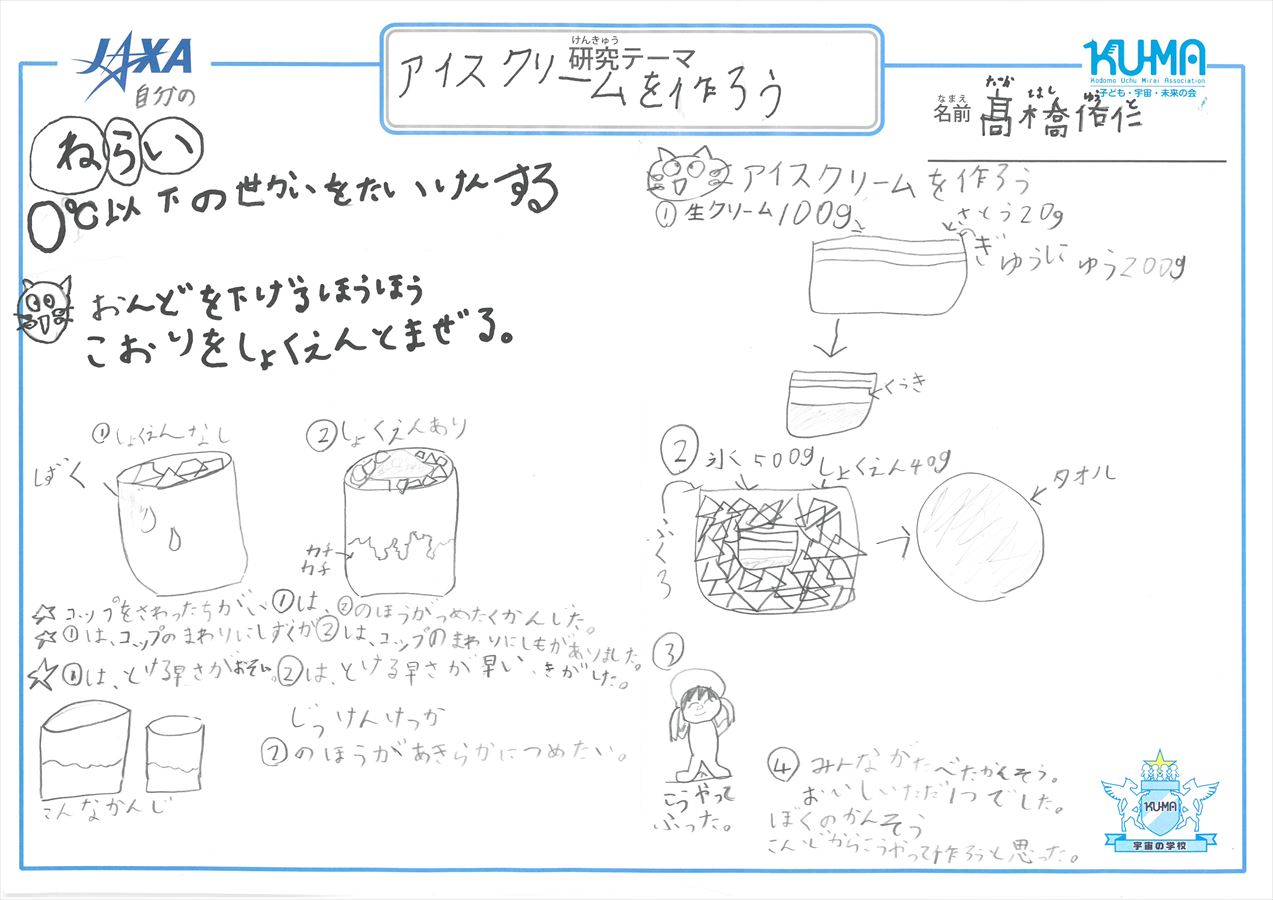 JAXA
けんきゅう
研究テーマ
アイスクリームを作ろう
KU-MA
Kodomo Uchu Mirai Association
子ども・宇宙・未来の会
なまえ
名前
たか はし ゆう と
髙橋侑仁
自分の
ねらい
0℃以下のせかいをたいけんする
おんどを下げるほうほう
こおりをしょくえんとまぜる。
①しょくえんなし
②しょくえんあり
しずく
カチ
カチ
☆コップをさわったちがい①は、②のほうがつめたくかんじた。
☆①は、コップのまわりにしずくが②は、コップのまわりにしもがありました。
☆①は、とける早さがおそい。②は、とける早さが早い、きがした。
じっけんけっか
②のほうがあきらかにつめたい。
こんなかんじ
アイスクリームを作ろう
①生クリーム100g
さとう20g
ぎゅうにゅう200g
くうき
②氷く500g
しょくえん40g
ふくろ
タオル
③
こうやって
ふった。
④みんながたべたかんそう。
おいしいただ1つでした。
ぼくのかんそう
こんどからこうやって作ろうと思った。
KU-MA
宇宙の学校